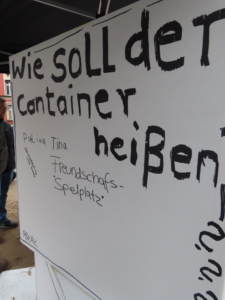 Wie SOLL der
Container
heißen
???
Tina
Freundschafs-
Spielplatz